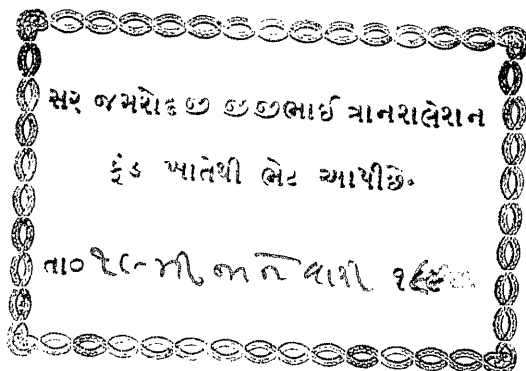 સર જમશેદ જી જી જીભાઈ ત્રાનશલેશન
ફંડ ખાતેથી ભેટ આપીછે.
તા૦ મી જાનેવારી